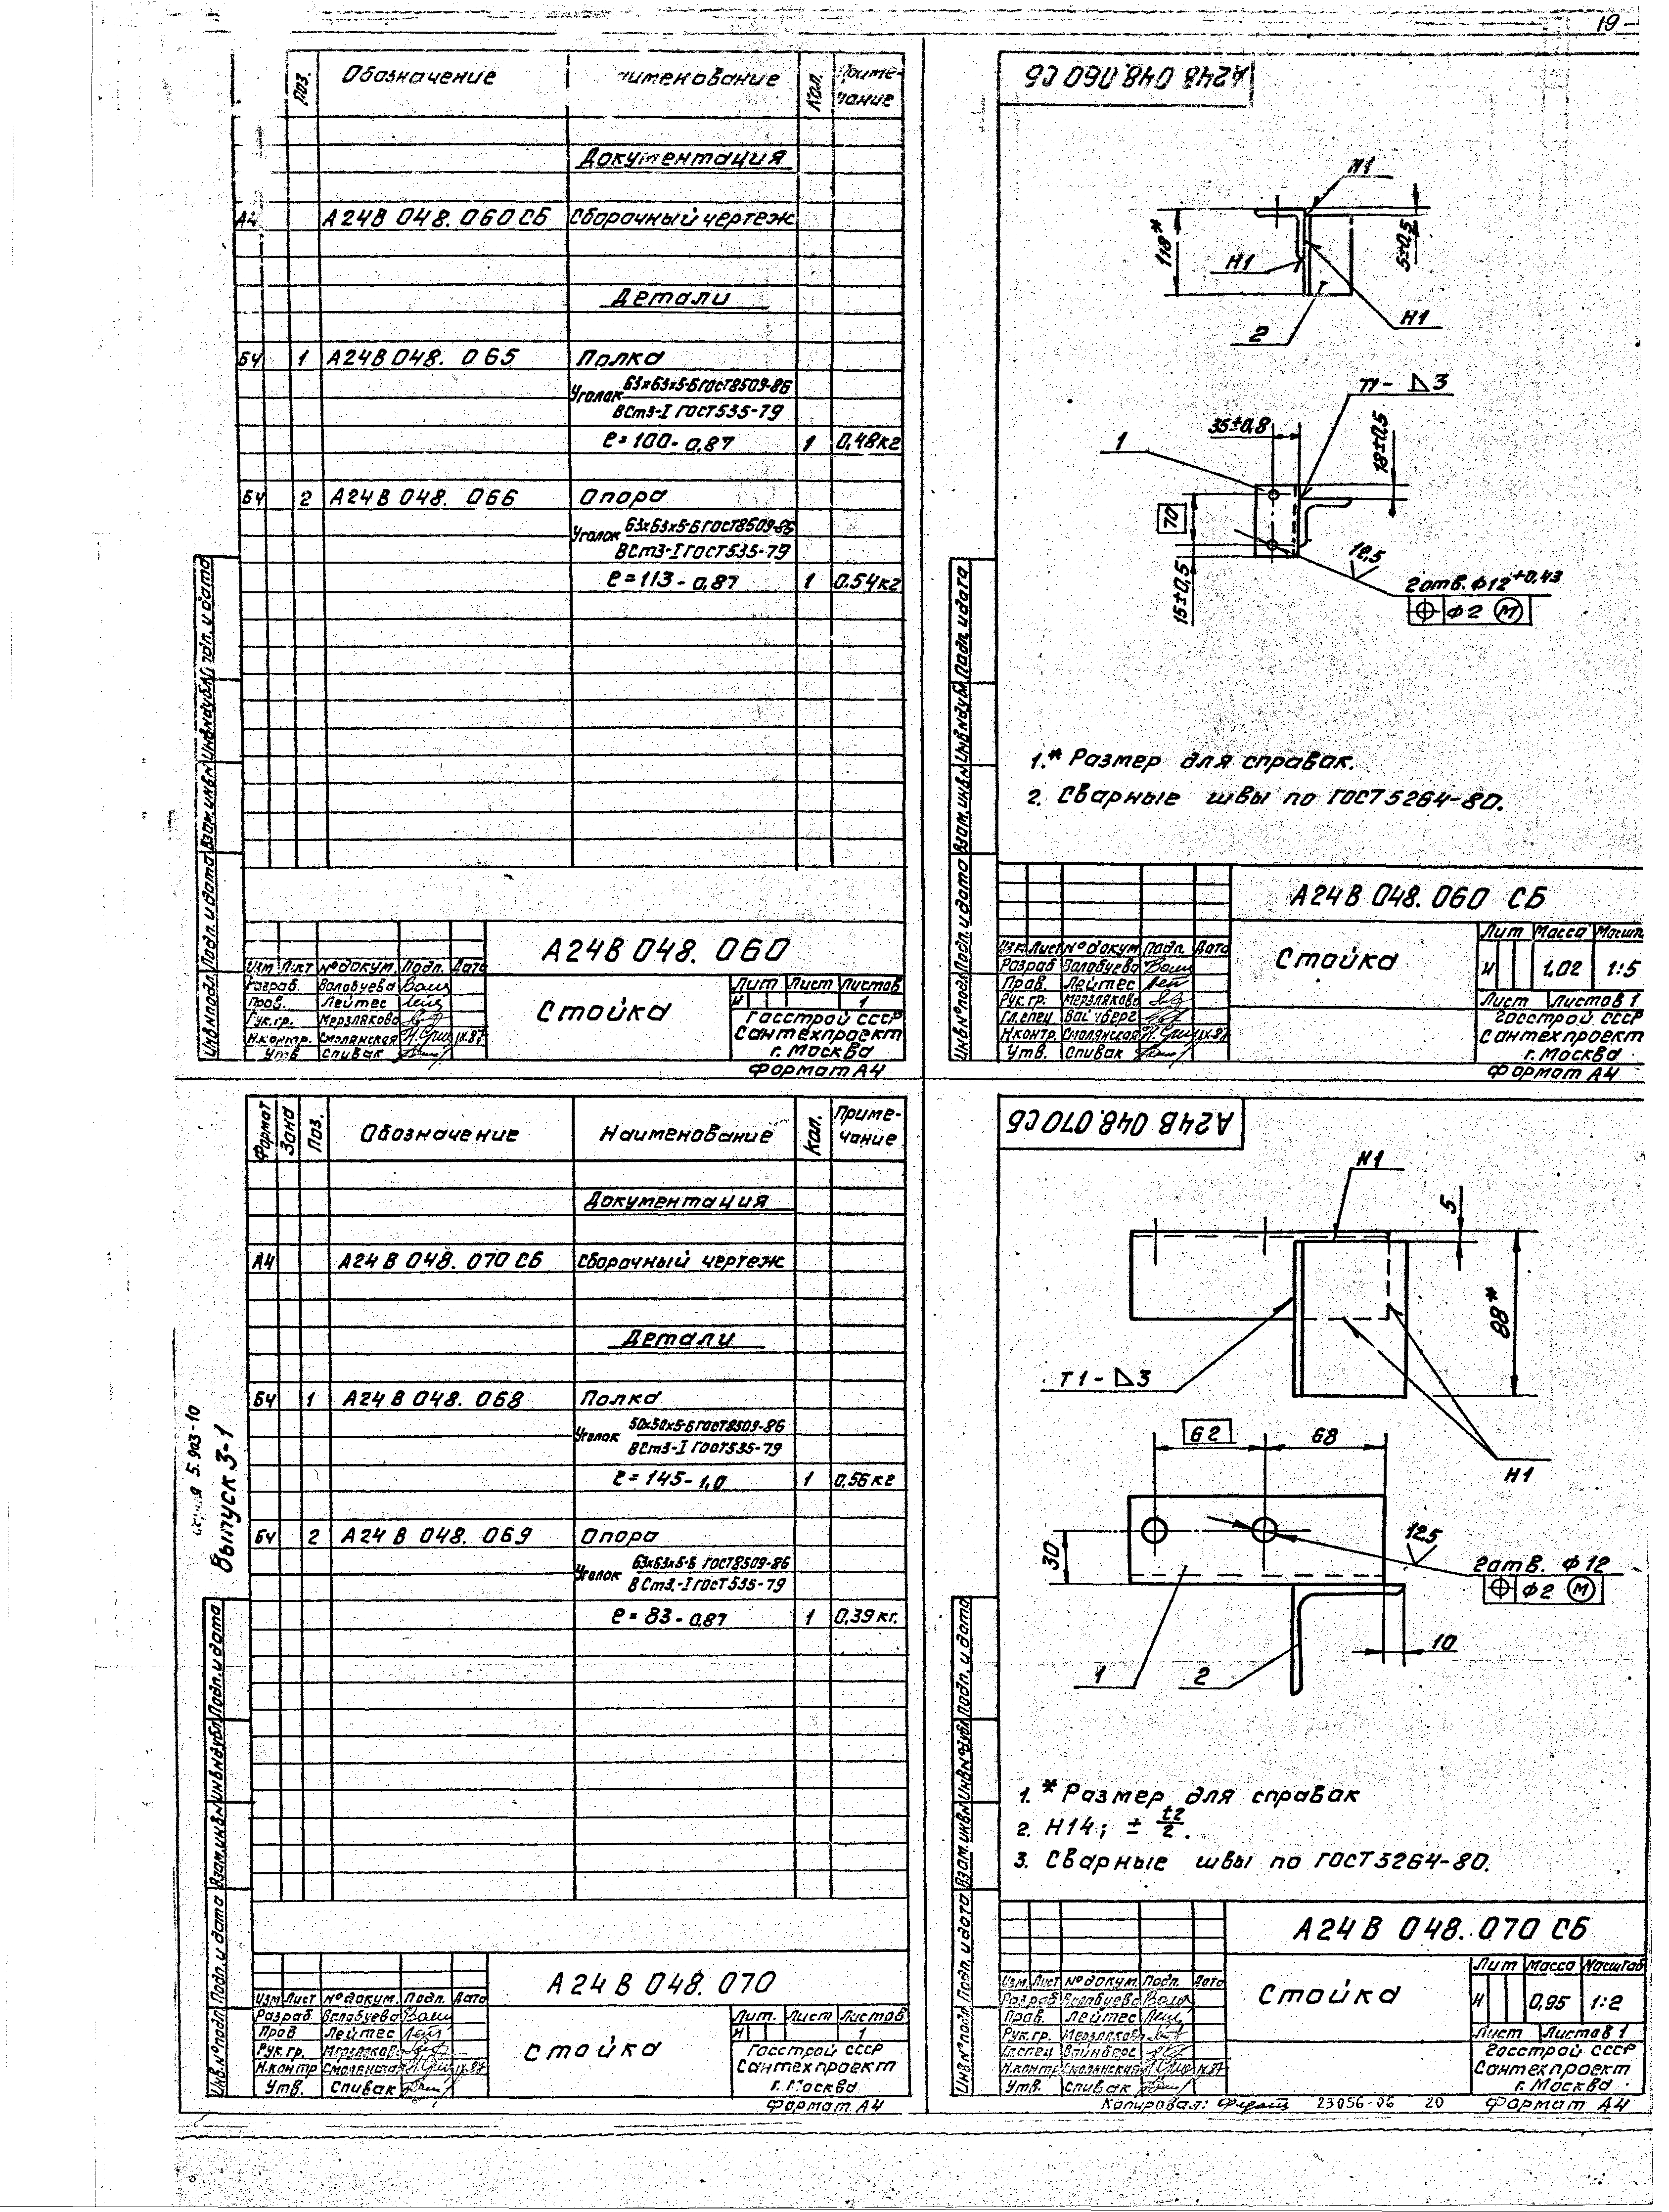 19
Поз. Обозначение Наименование Кол. Приме-
чание
Документация
А4 А24В 048. 060 СБ Сборочный чертеж
Детали
БЧ 1 А24В 048. 065 Полка
Уголок 63х63х5-Б ГОСТ 8509-86
ВСт3-I ГОСТ 535-79
ℓ=100-0,87 1 0,48кг
БЧ 2 А24В 048. 066 Опора
Уголок 63х63х5-Б ГОСТ 8509-86
ВСт3-I ГОСТ 535-79
ℓ=113-0,87 1 0.54кг
Инв.№подл. Подп. и дата Взам.инв.№ Инв.№дубл. Подп. и дата
А24В 048. 060
Изм Лист №докум. Подп. Дата
Разраб. Валабуева
Пров. Лейтес
Рук.гр. Мерзлякова
Н.контр. Смолянская IX.87
Утв. Спивак
Стойка
Лит Лист Листов
И 1
Госстрой СССР
Сантехпроект
г. Москва
Формат А4
А24В 048.060 СБ
И1
118*
5±0,5
Н1
Н1
2
Т1-◺3
35±0,8
18±0,5
1
70
12,5
15±0,5
2 отв. ф12+0,43
⌖ ф2 Ⓜ
1.* Размер для справок.
2. Сварные швы по ГОСТ 5264-80.
Инв.№подл. Подп. и дата Взам.инв.№ Инв.№дубл. Подп. и дата
А24В 048. 060 СБ
Изм Лист №докум. Подп. Дата
Разраб Валабуева
Пров. Лейтес
Рук.гр. Мерзлякова
Гл.спец Вайнберг
Н.контр. Смолянская IX.87
Утв. Спивак
Стойка
Лит Масса Масшт
И 1,02 1:5
Лист Листов 1
Госстрой СССР
Сантехпроект
г. Москва
Формат А4
серия 5.903-10
Выпуск 3-1
Формат Зона Поз. Обозначение Наименование Кол. Приме-
чание
Документация
А4 А24В 048. 070 СБ Сборочный чертеж
Детали
БЧ 1 А24В 048. 068 Полка
Уголок 50х50х5-Б ГОСТ 8509-86
ВСт3-I ГОСТ 535-79
ℓ=145-1,0 1 0,56кг
БЧ 2 А24В 048. 069 Опора
Уголок 63х63х5-Б ГОСТ 8509-86
ВСт3.-I ГОСТ 535-79
ℓ=83-0,87 1 0,39кг.
Инв.№подл. Подп. и дата Взам.инв.№ Инв.№дубл. Подп. и дата
А24В 048. 070
Изм Лист №докум. Подп. Дата
Разраб Валабуева
Пров Лейтес
Рук.гр. Мерзлякова
Н.контр Смолянская IX.87
Утв. Спивак
Стойка
Лит. Лист Листов
И 1
Госстрой СССР
Сантехпроект
г. Москва
Формат А4
А24В 048.070 СБ
Н1
5
88*
Т1-◺3
62 68
Н1
30
12,5
2 отв. ф12
⌖ ф2 Ⓜ
10
1 2
1. * Размер для справок
2. Н14; ± t2/2.
3. Сварные швы по ГОСТ 5264-80.
Инв.№подл. Подп. и дата Взам.инв.№ Инв.№дубл. Подп. и дата
А24В 048. 070 СБ
Изм. Лист №докум. Подп. Дата
Разраб Валабуева
Пров. Лейтес
Рук.гр. Мерзлякова
Гл.спец Вайнберг
Н.контр Смолянская IX.87
Утв. Спивак
Стойка
Лит Масса Масштаб
И 0,95 1:2
Лист Листов 1
Госстрой СССР
Сантехпроект
г. Москва
Копировал: 23056-06 20 Формат А4